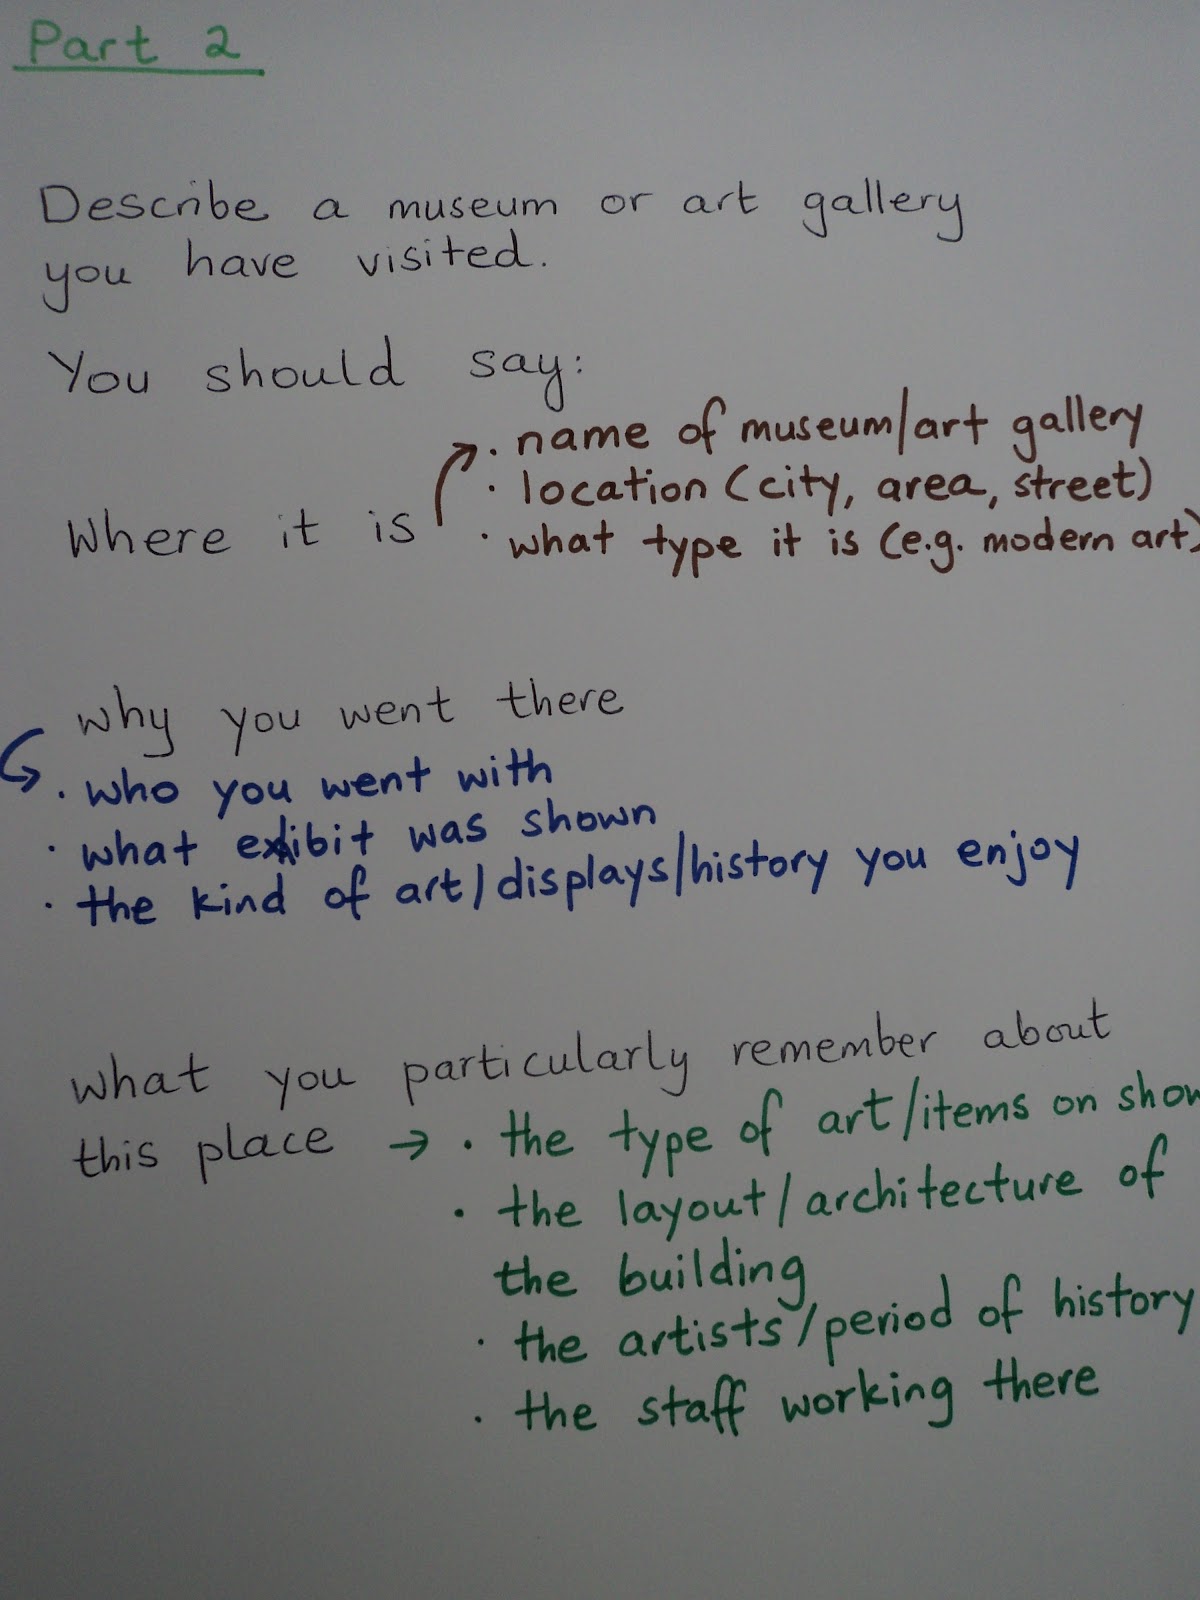 Part 2
Describe a museum or art gallery
you have visited.
You should say:
Where it is
· name of museum/art gallery
· location (city, area, street)
· what type it is (e.g. modern art)
why you went there
· who you went with
· what exhibit was shown
· the kind of art/displays/history you enjoy
what you particularly remember about
this place → · the type of art/items on show
· the layout/architecture of
the building
· the artists/period of history
· the staff working there